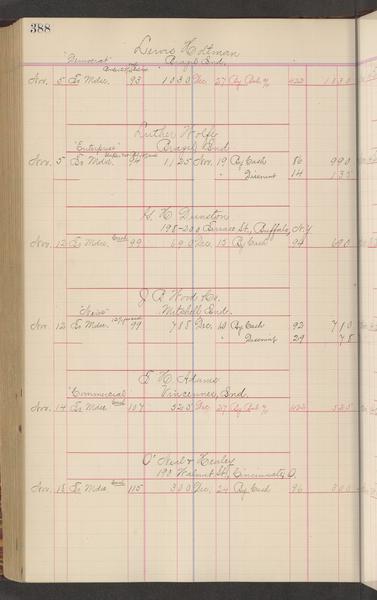 388
Lewis Holtman
"Democrat" Brazil Ind.
Nov. 5 To Mdse. 93 1030 Dec 27 By Bal 422 1030
Luther Wolfe
"Enterprise" Brazil Ind
Nov. 5 To Mdse. 94 1125 Nov. 19 By Cash 86 990
" Discount 14 135
H. H. Dunston
198-200 Terrace St., Buffalo, N.Y
Nov. 12 To Mdse. Cash 99 690 Dec. 12 By Cash 94 690
J B Wood & Co.
"News" Mitchell Ind.
Nov. 12 To Mdse. 99 788 Dec. 10 By Cash 92 710
" Discount 29 78
E. H. Adams
"Commercial" Vincennes, Ind.
Nov. 14 To Mdse 107 525 Dec 27 By Bal 422 525
O'Neil & Healey
190 Walnut St., Cincinnati, O.
Nov. 18 To Mdse Cash 115 300 Dec. 24 By Cash 96 300